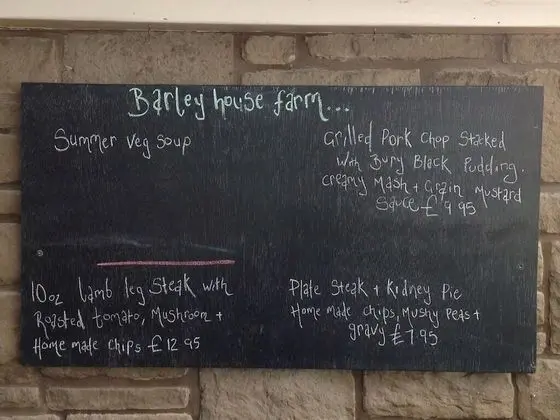 Barley house farm...
Summer Veg Soup
Grilled Pork Chop Stacked
with Bury Black Pudding.
Creamy Mash + Grain Mustard
Sauce £9.95
10oz Lamb leg Steak with
Roasted tomato, Mushroom +
Home made chips £12.95
Plate Steak + Kidney Pie
Home made chips, Mushy Peas +
gravy £7.95